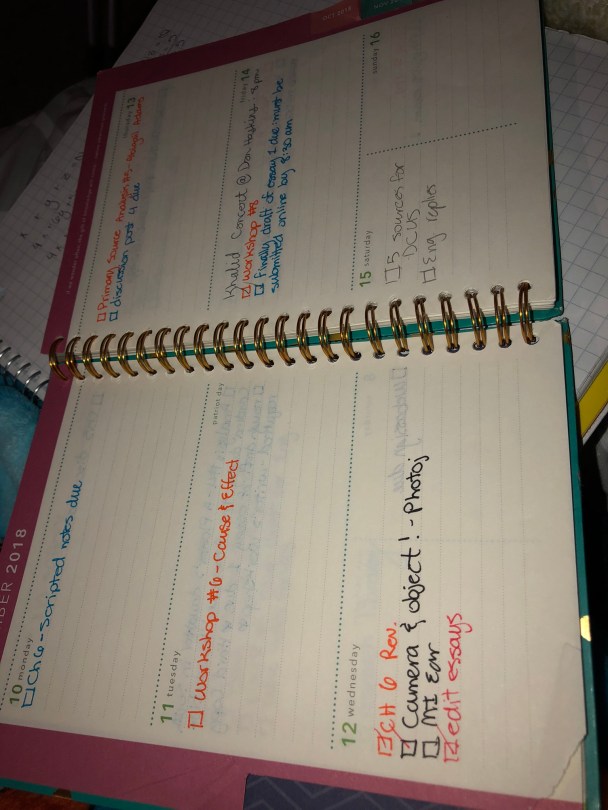 BER 2018
10 monday
Ch 6 - Scripted notes due
11 tuesday
patriot day
Workshop #6 - Cause & Effect
12 wednesday
CH 6 Rev.
Camera & object! - Photoj
MI Ear
edit essays
13
Primary Source Analysis #3 - Abigail Adams
discussion post 4 due
14
Khalid Concert @ Don Haskins : 8 pm
Workshop #8
Finally draft of essay 1 due: must be
submitted online by 8:30 am
15 saturday
5 sources for
DCUS
Eng replies
sunday 16